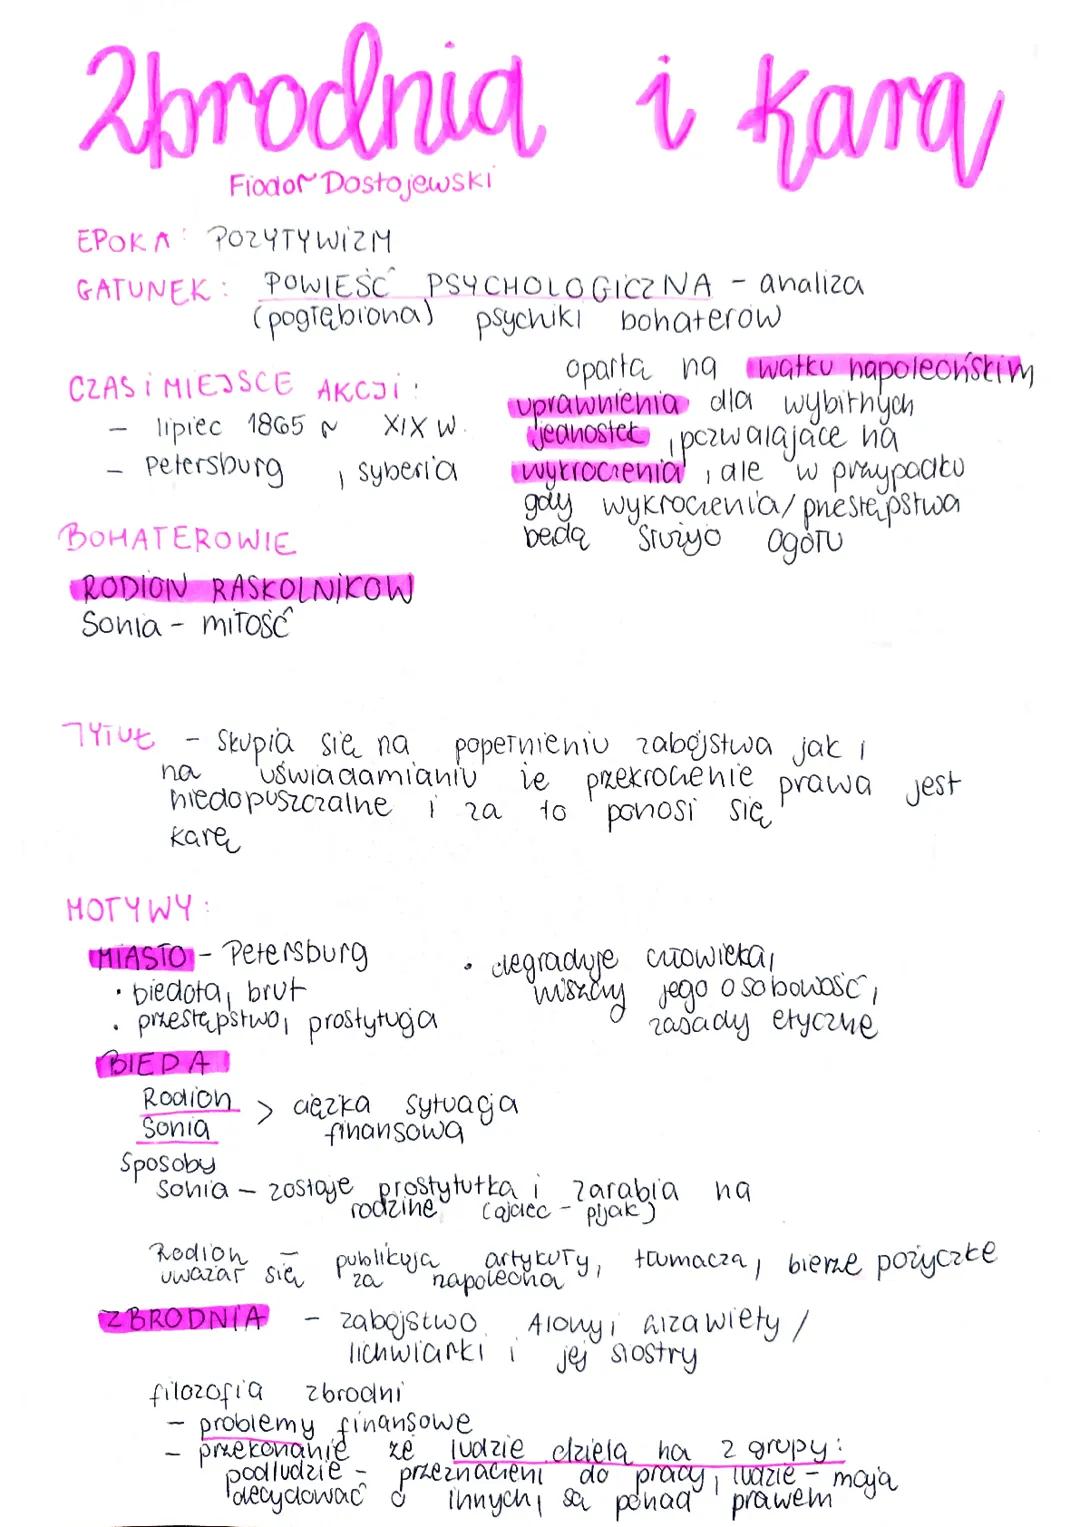 Zbrodnia i kara
Fiodor Dostojewski
EPOKA: POZYTYWIZM
GATUNEK: POWIEŚĆ PSYCHOLOGICZNA - analiza
(pogłębiona) psychiki bohaterów
CZAS i MIEJSCE AKCJI:
- lipiec 1865 r XIX w.
- Petersburg, syberia
oparta na wątku napoleońskim
uprawnienia dla wybitnych
jednostek, pozwalające na
wykroczenia, ale w przypadku
gdy wykroczenia/przestępstwa
będą służyo ogółu
BOHATEROWIE
RODION RASKOLNIKOW
Sonia - miłość
TYTUŁ - skupia się na popełnieniu zabójstwa jak i
na uświadamianiu że przekroczenie prawa jest
niedopuszczalne i za to ponosi się
karę
MOTYWY:
MIASTO - Petersburg
• biedota, brut
• przestępstwo, prostytucja
• degraduje człowieka,
niszczy jego osobowość,
zasady etyczne
BIEDA
Rodion
Sonia > ciężka sytuacja
finansowa
Sposoby
Sonia - zostaje prostytutką i zarabia na
rodzinę (ojciec - pijak)
Rodion - publikuja artykuły, tłumacza, bierze pożyczke
uważał się za napoleona
ZBRODNIA - zabójstwo Alony i Lizawiety /
lichwiarki i jej siostry
filozofia zbrodni
- problemy finansowe
- przekonanie że ludzie dzielą na 2 grupy:
podludzie - przeznaczeni do pracy, ludzie - mają
decydować o innych, są ponad prawem